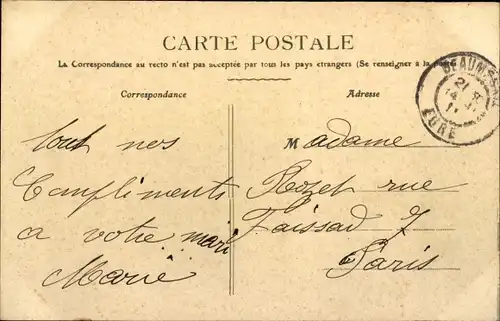 CARTE POSTALE
La Correspondance au recto n'est pas acceptée par tous les pays étrangers (Se renseigner à la poste)
Correspondance
Adresse
tout nos
Compliments
a votre mari
Marie
Madame
Rozet rue
Paris
EURE